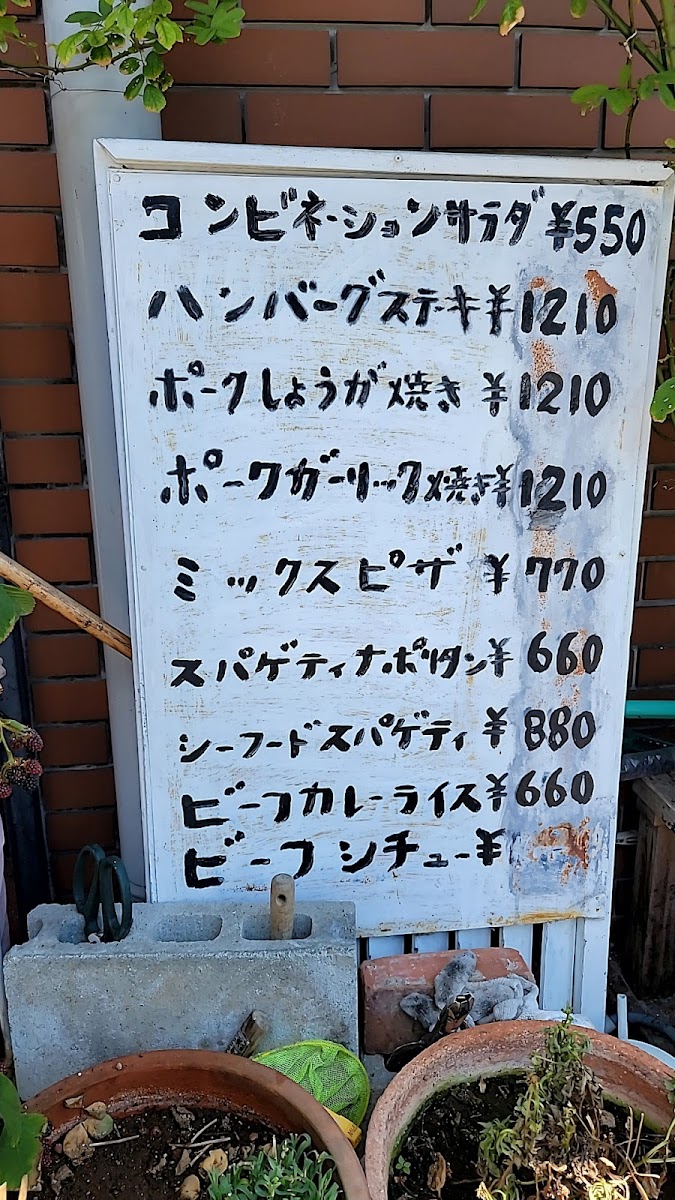 コンビネーションサラダ ¥550
ハンバーグステーキ ¥1210
ポークしょうが焼き ¥1210
ポークガーリック焼き ¥1210
ミックスピザ ¥770
スパゲティナポリタン ¥660
シーフードスパゲティ ¥880
ビーフカレーライス ¥660
ビーフシチュー ¥